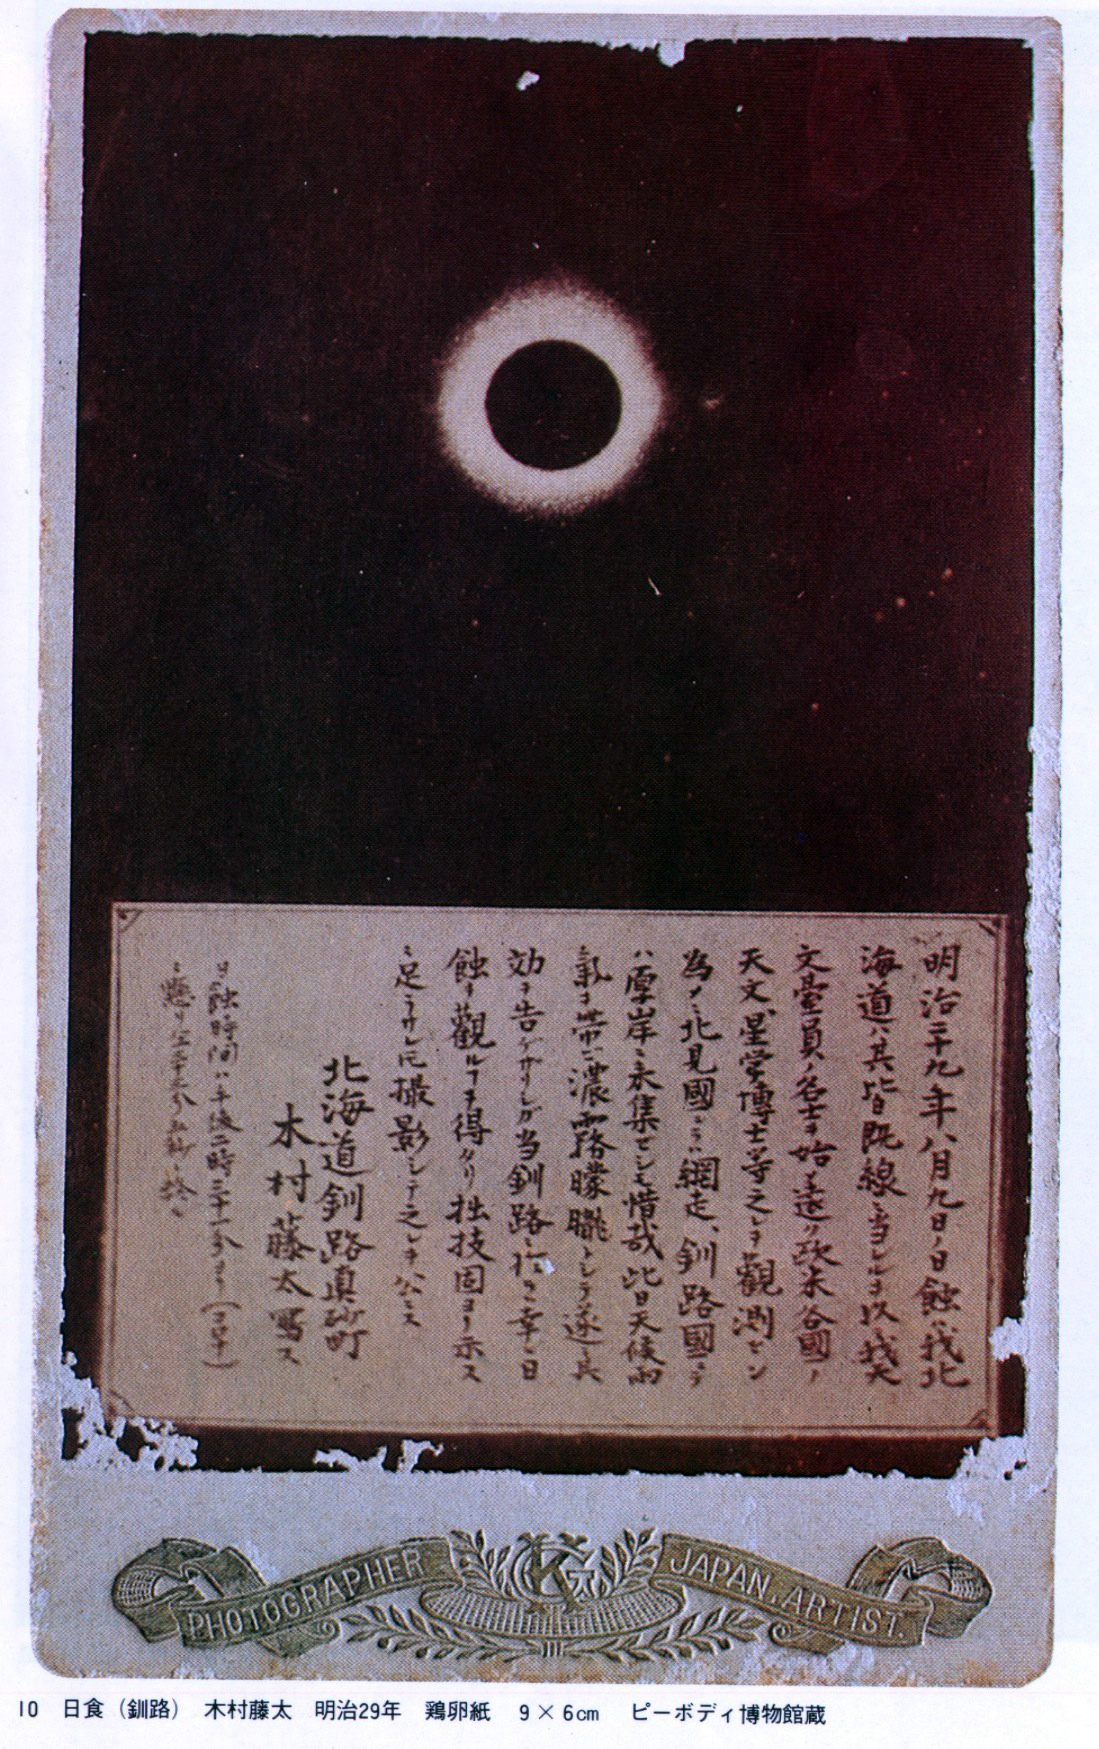 明治二十九年八月九日ノ日蝕ハ我北
海道ハ其皆既線ニ当レルヲ以我天
文臺員ノ名士ヲ始メ遠ク欧米各國ノ
天文星学博士等之レヲ觀測セン
為メ北見國ニテハ網走、釧路國ニテ
ハ厚岸ニ来集セシモ惜哉此日天候雨
氣ヲ帯ヒ濃霧朦朧トシテ遂ニ其
効ヲ告ケサリシガ当釧路ニ於テ幸ニ日
蝕ヲ觀ルヿヲ得タリ拙技固ヨリ示ス
ニ足ラサレ𪜈撮影シテ之レヲ公ニス
北海道釧路真砂町
木村藤太寫ス
日蝕時間ハ午後二時三十一分ヨリ
PHOTOGRAPHER K JAPAN.ARTIST.
10 日食(釧路) 木村藤太 明治29年 鶏卵紙 9×6cm ピーボディ博物館蔵